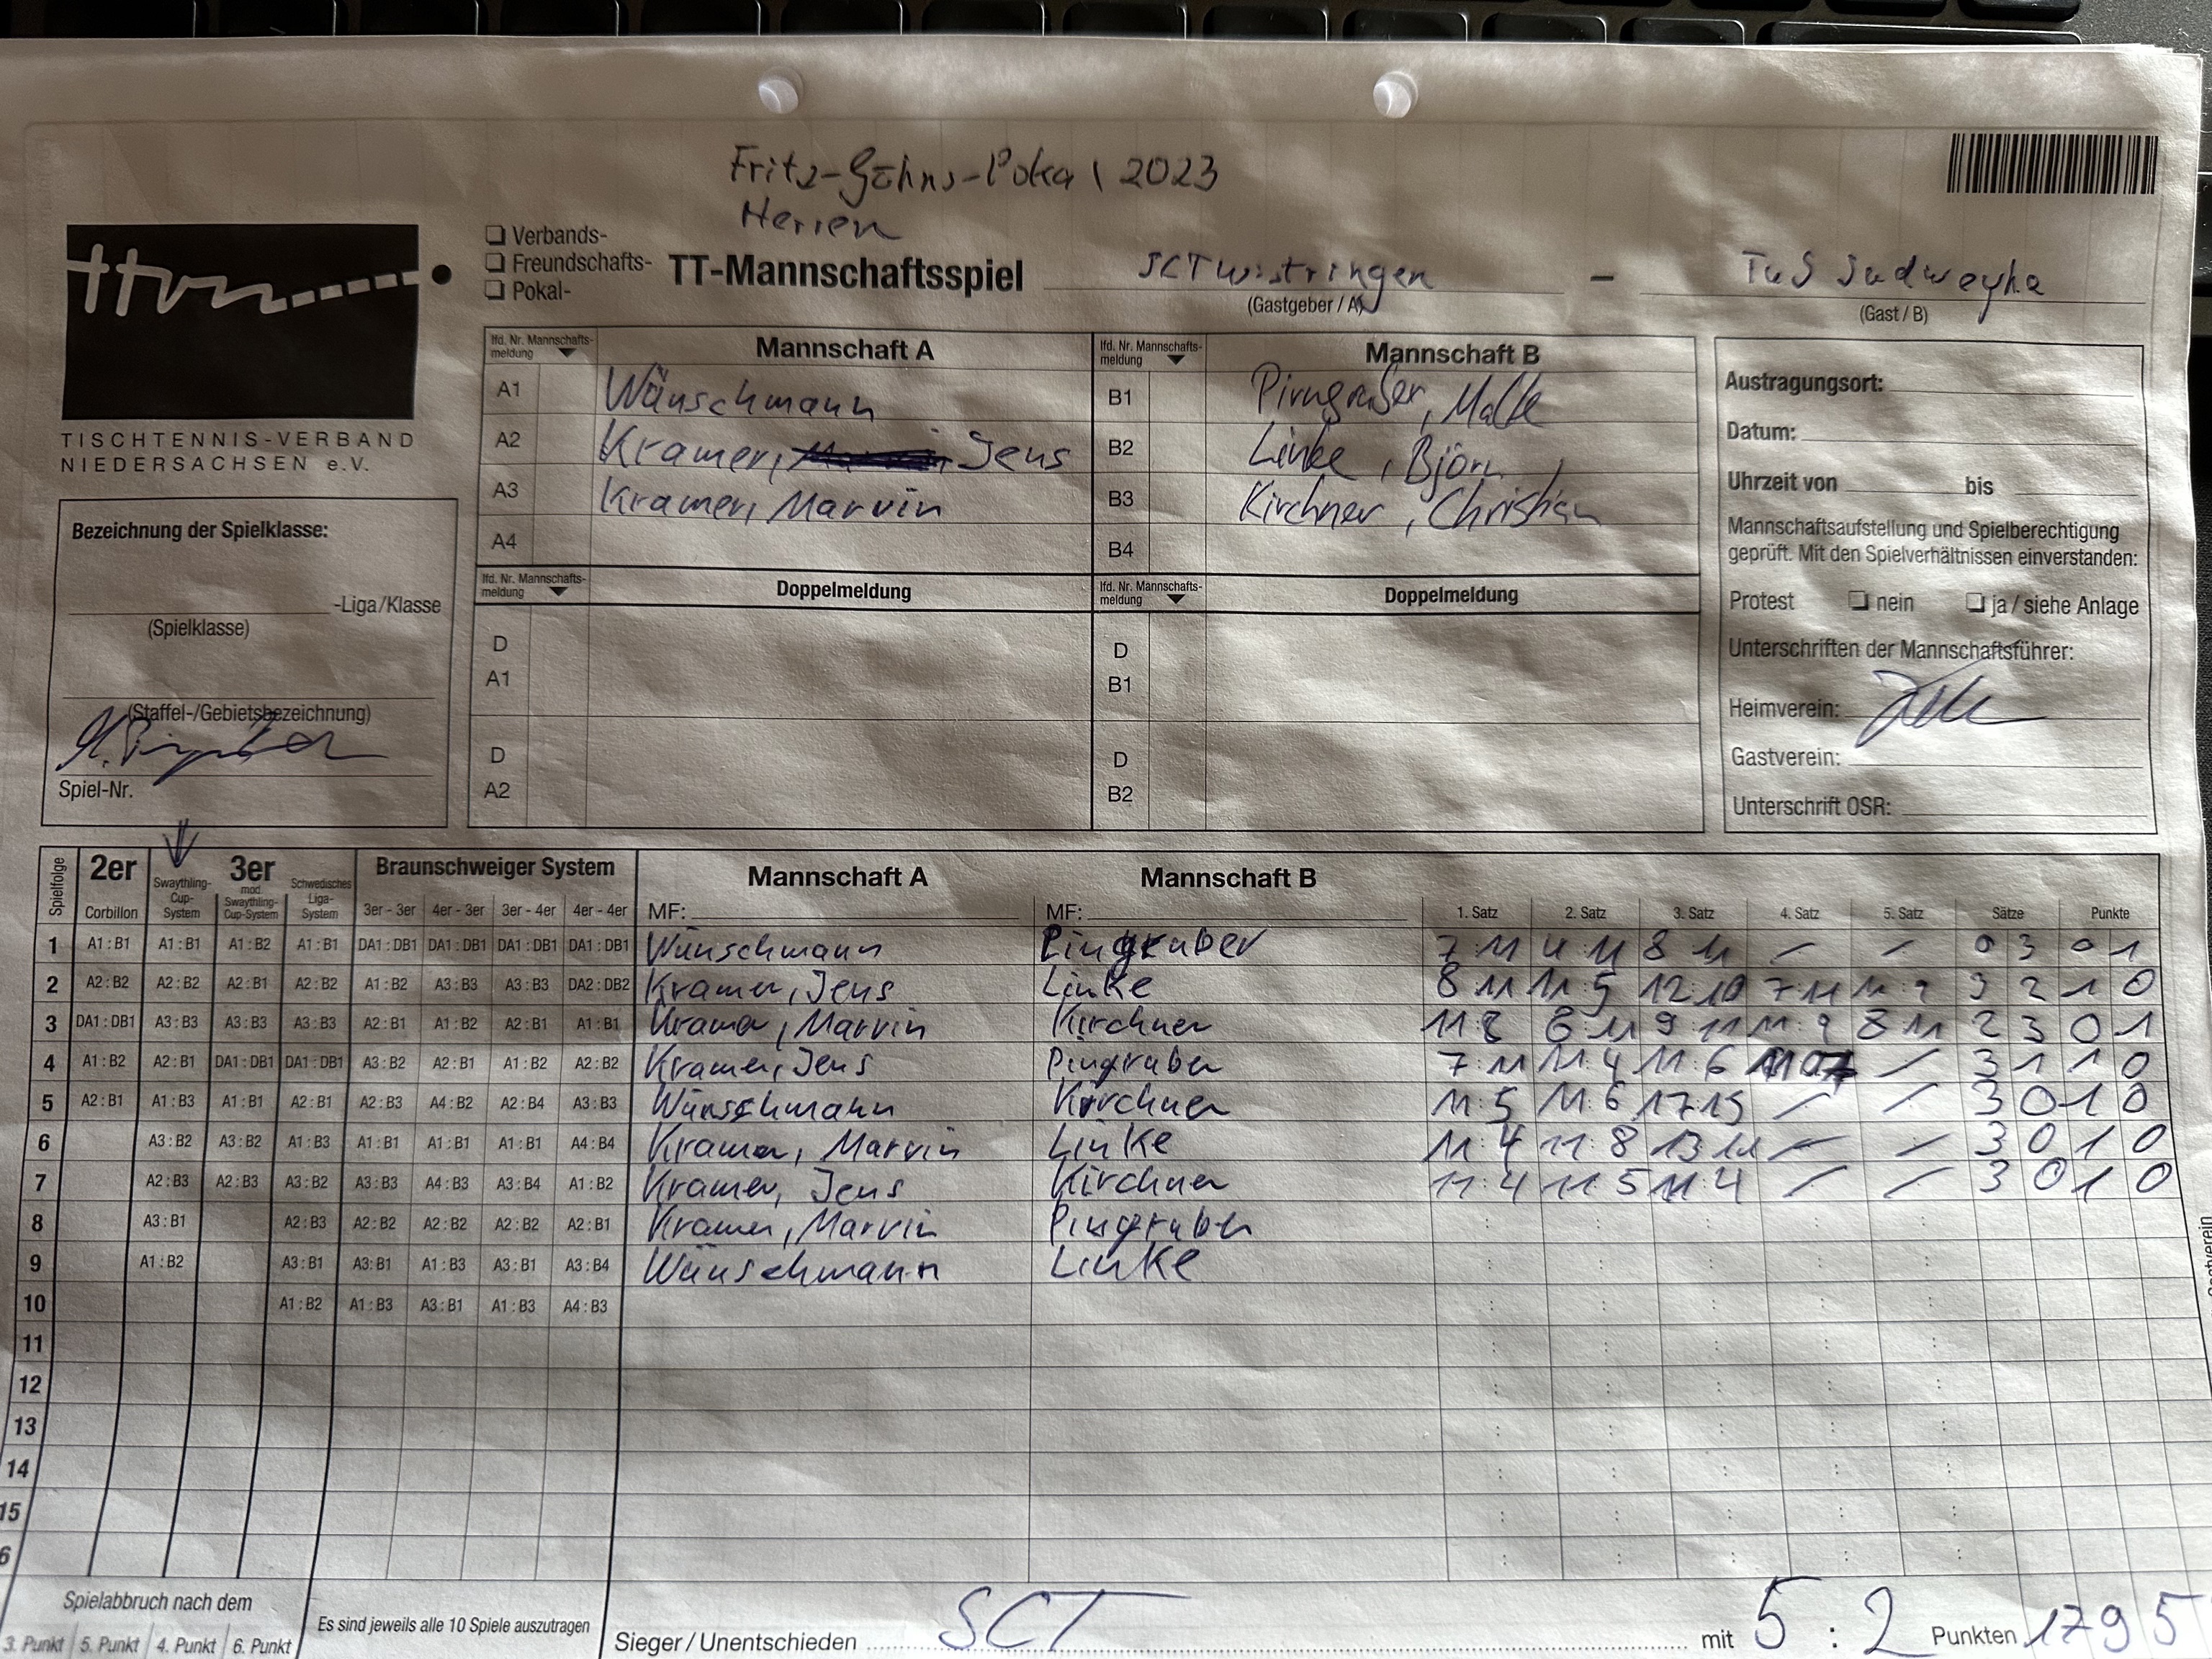 Fritz-Göhns-Pokal 2023
Herren
ttvn
TISCHTENNIS-VERBAND
NIEDERSACHSEN e.V.
Verbands-
Freundschafts-
Pokal-
TT-Mannschaftsspiel SCTwistringen – TuS Sudweyhe
(Gastgeber / A) (Gast / B)
lfd. Nr. Mannschafts-meldung Mannschaft A lfd. Nr. Mannschafts-meldung Mannschaft B
A1 Wünschmann B1 Pirngruber, Malte
A2 Kramer, Jens B2 Linke, Björn
A3 Kramer, Marvin B3 Kirchner, Christian
A4 B4
lfd. Nr. Mannschafts-meldung Doppelmeldung lfd. Nr. Mannschafts-meldung Doppelmeldung
D D
A1 B1
D D
A2 B2
Austragungsort:
Datum:
Uhrzeit von bis
Mannschaftsaufstellung und Spielberechtigung
geprüft. Mit den Spielverhältnissen einverstanden:
Protest nein ja / siehe Anlage
Unterschriften der Mannschaftsführer:
Heimverein:
Gastverein:
Unterschrift OSR:
Bezeichnung der Spielklasse:
-Liga/Klasse
(Spielklasse)
(Staffel-/Gebietsbezeichnung)
Spiel-Nr.
Spielfolge 2er 3er Braunschweiger System Mannschaft A Mannschaft B
Corbillon Swaythling-Cup-System mod. Swaythling-Cup-System Schwedisches Liga-System 3er - 3er 4er - 3er 3er - 4er 4er - 4er MF: MF: 1. Satz 2. Satz 3. Satz 4. Satz 5. Satz Sätze Punkte
1 A1 : B1 A1 : B1 A1 : B2 A1 : B1 DA1 : DB1 DA1 : DB1 DA1 : DB1 DA1 : DB1 Wünschmann Pingruber 7 : 11 4 : 11 8 : 11 / / 0 3 0 1
2 A2 : B2 A2 : B2 A2 : B1 A2 : B2 A1 : B2 A3 : B3 A3 : B3 DA2 : DB2 Kramer, Jens Linke 8 : 11 11 : 5 12 : 10 7 : 11 11 : 9 3 2 1 0
3 DA1 : DB1 A3 : B3 A3 : B3 A3 : B3 A2 : B1 A1 : B2 A2 : B1 A1 : B1 Kramer, Marvin Kirchner 11 : 8 6 : 11 9 : 11 11 : 9 8 : 11 2 3 0 1
4 A1 : B2 A2 : B1 DA1 : DB1 DA1 : DB1 A3 : B2 A2 : B1 A1 : B2 A2 : B2 Kramer, Jens Pingruber 7 : 11 11 : 4 11 : 6 / 3 1 1 0
5 A2 : B1 A1 : B3 A1 : B1 A2 : B1 A2 : B3 A4 : B2 A2 : B4 A3 : B3 Wünschmann Kirchner 11 : 5 11 : 6 17 : 15 / / 3 0 1 0
6 A3 : B2 A3 : B2 A1 : B3 A1 : B1 A1 : B1 A1 : B1 A4 : B4 Kramer, Marvin Linke 11 : 4 11 : 8 13 : 11 / / 3 0 1 0
7 A2 : B3 A2 : B3 A3 : B2 A3 : B3 A4 : B3 A3 : B4 A1 : B2 Kramer, Jens Kirchner 11 : 4 11 : 5 11 : 4 / / 3 0 1 0
8 A3 : B1 A2 : B3 A2 : B2 A2 : B2 A2 : B2 A2 : B1 Kramer, Marvin Pingruber
9 A1 : B2 A3 : B1 A3 : B1 A1 : B3 A3 : B1 A3 : B4 Wünschmann Linke
10 A1 : B2 A1 : B3 A3 : B1 A1 : B3 A4 : B3
11
12
13
14
15
6
Spielabbruch nach dem
3. Punkt 5. Punkt 4. Punkt 6. Punkt
Es sind jeweils alle 10 Spiele auszutragen
Sieger / Unentschieden SCT mit 5 : 2 Punkten 17 9 5